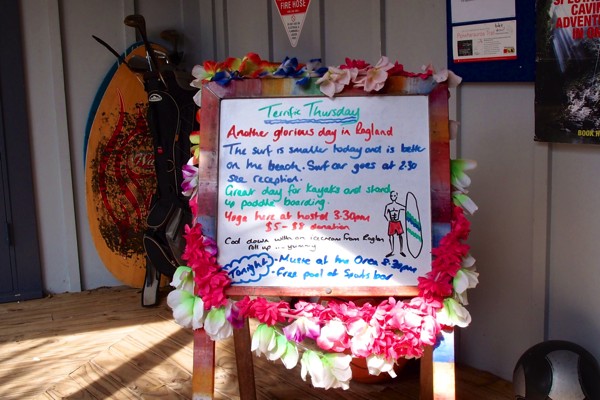 FIRE HOSE
Terrific Thursday
Another glorious day in Ragland
The surf is smaller today and is better
on the beach. Surf car goes at 2:30
see reception.
Great day for kayaks and stand
up paddle boarding.
Yoga here at hostel 3.30pm
$5 - $8 donation
Cool down with an icecream from
roll up yummy
Tonight
- Music at the Orca 8.30pm
- Free pool at Spats bar
CAVING
ADVENTURE
IN
BOOK